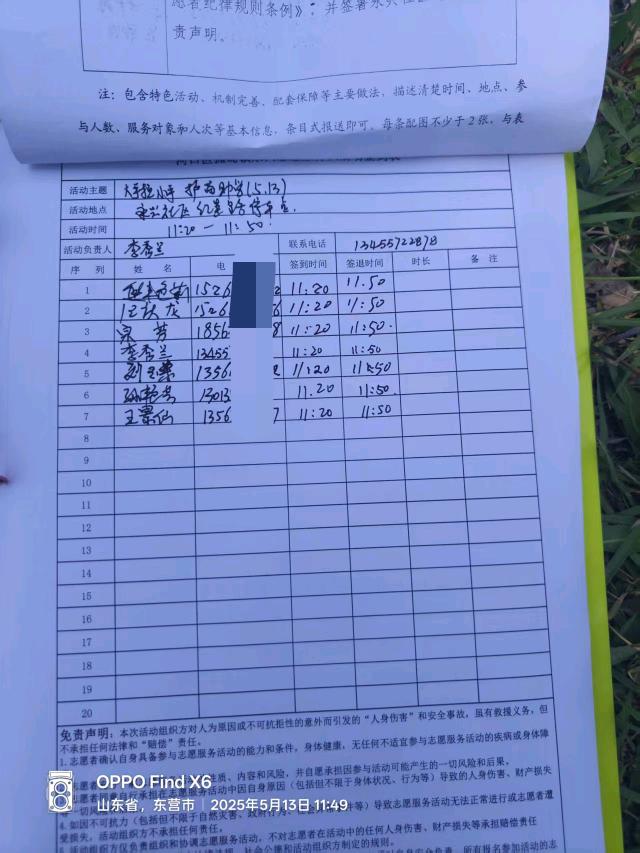 愿者纪律规则条例》；并签署永兴社区
责声明。
注：包含特色活动、机制完善、配套保障等主要做法，描述清楚时间、地点、参
与人数、服务对象和人次等基本信息，条目式报送即可。每条配图不少于2张，与表
活动主题 大手拉小手 护苗助学(5.13)
活动地点
活动时间 11:20—11:50.
活动负责人 李香兰 联系电话 13455722878
序 列 姓 名 电 签到时间 签退时间 时长 备 注
1 1526 2 11:20 11.50
2 1526 6 11:20 11:50
3 宗 芳 1856 8 11:20 11:50.
4 李香兰 13455 11:20 11:50
5 1356 11:20 11:50
6 1301311.20 11:50.
7 王景仙 1356 7 11:20 11:50
8
9
10
11
12
13
14
15
16
17
18
19
20
免责声明：本次活动组织方对人为原因或不可抗拒性的意外而引发的“人身伤害”和安全事故，虽有救援义务，但
不承担任何法律和“赔偿”责任。
1.志愿者确认自身具备参与志愿服务活动的能力和条件，身体健康，无任何不适宜参与志愿服务活动的疾病或身体障
性质、内容和风险，并自愿承担因参与活动可能产生的一切风险和后果。
志愿者同意自行承担在志愿服务活动中因自身原因（包括但不限于身体状况、行为等）导致的人身伤害、财产损失
等一切风险
4.如因不可抗力（包括但不限于自然灾害、政府行为、等）导致志愿服务活动无法正常进行或志愿者遭
受损失，活动组织方不承担任何责任。
5.活动组织方仅负责组织和协调志愿服务活动，不对志愿者在活动中的任何人身伤害、财产损失等承担赔偿责任
社会公德和活动组织方制定的规则。
OPPO Find X6
山东省，东营市 2025年5月13日 11:49